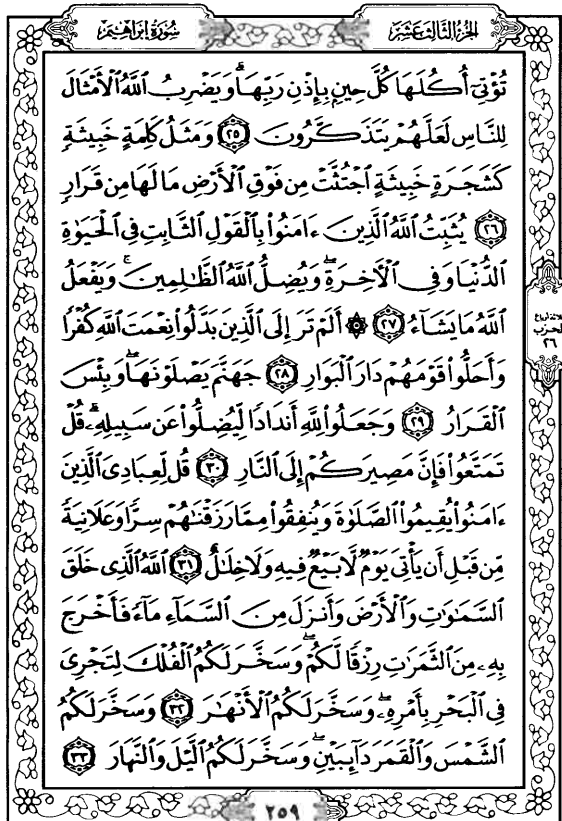 الجزء الثالث عشر
سورة إبراهيم
تُؤْتِيٓ أُكُلَهَا كُلَّ حِينٍۭ بِإِذْنِ رَبِّهَاۗ وَيَضْرِبُ ٱللَّهُ ٱلْأَمْثَالَ
لِلنَّاسِ لَعَلَّهُمْ يَتَذَكَّرُونَ ٢٥ وَمَثَلُ كَلِمَةٍ خَبِيثَةٍ
كَشَجَرَةٍ خَبِيثَةٍ ٱجْتُثَّتْ مِن فَوْقِ ٱلْأَرْضِ مَا لَهَا مِن قَرَارٍ
٢٦ يُثَبِّتُ ٱللَّهُ ٱلَّذِينَ ءَامَنُوا۟ بِٱلْقَوْلِ ٱلثَّابِتِ فِي ٱلْحَيَوٰةِ
ٱلدُّنْيَا وَفِي ٱلْءَاخِرَةِۖ وَيُضِلُّ ٱللَّهُ ٱلظَّٰلِمِينَۚ وَيَفْعَلُ
ٱللَّهُ مَا يَشَآءُ ٢٧ ۞ أَلَمْ تَرَ إِلَى ٱلَّذِينَ بَدَّلُوا۟ نِعْمَتَ ٱللَّهِ كُفْرًا
وَأَحَلُّوا۟ قَوْمَهُمْ دَارَ ٱلْبَوَارِ ٢٨ جَهَنَّمَ يَصْلَوْنَهَاۖ وَبِئْسَ
ٱلْقَرَارُ ٢٩ وَجَعَلُوا۟ لِلَّهِ أَندَادًا لِّيُضِلُّوا۟ عَن سَبِيلِهِۦۗ قُلْ
تَمَتَّعُوا۟ فَإِنَّ مَصِيرَكُمْ إِلَى ٱلنَّارِ ٣٠ قُل لِّعِبَادِيَ ٱلَّذِينَ
ءَامَنُوا۟ يُقِيمُوا۟ ٱلصَّلَوٰةَ وَيُنفِقُوا۟ مِمَّا رَزَقْنَٰهُمْ سِرًّا وَعَلَانِيَةً
مِّن قَبْلِ أَن يَأْتِيَ يَوْمٌ لَّا بَيْعٌ فِيهِ وَلَا خِلَٰلٌ ٣١ ٱللَّهُ ٱلَّذِي خَلَقَ
ٱلسَّمَٰوَٰتِ وَٱلْأَرْضَ وَأَنزَلَ مِنَ ٱلسَّمَآءِ مَآءً فَأَخْرَجَ
بِهِۦ مِنَ ٱلثَّمَرَٰتِ رِزْقًا لَّكُمْۖ وَسَخَّرَ لَكُمُ ٱلْفُلْكَ لِتَجْرِيَ
فِي ٱلْبَحْرِ بِأَمْرِهِۦۖ وَسَخَّرَ لَكُمُ ٱلْأَنْهَٰرَ ٣٢ وَسَخَّرَ لَكُمُ
ٱلشَّمْسَ وَٱلْقَمَرَ دَآئِبَيْنِۖ وَسَخَّرَ لَكُمُ ٱلَّيْلَ وَٱلنَّهَارَ ٣٣
ثلاثة أرباع
الحزب
٢٦
٢٥٩